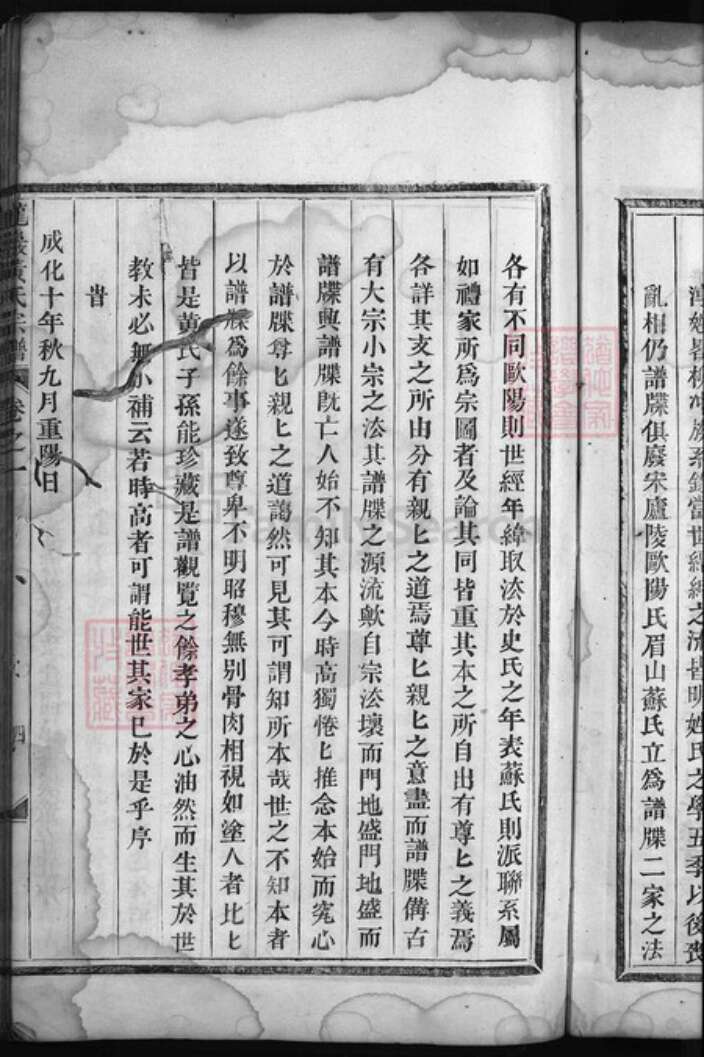 亂相仍譜牒俱廢宋廬陵歐陽氏眉山蘇氏立為譜牒二家之法
各有不同歐陽則世經年緯取法於史氏之年表蘇氏則派聯系屬
如禮家所為宗圖者及論其同皆重其本之所自出有尊匕之義焉
各詳其支之所由分有親匕之道焉尊匕親匕之意盡而譜牒備古
有大宗小宗之法其譜牒之源流歟自宗法壞而門地盛門地盛而
譜牒興譜牒既亡人始不知其本今時高獨惓匕推念本始而究心
於譜牒尊匕親匕之道藹然可見其可謂知所本哉世之不知本者
以譜牒為餘事遂致尊卑不明昭穆無别骨肉相視如塗人者比匕
皆是黃氏子孫能珍藏是譜觀覽之餘孝弟之心油然而生其於世
教未必無小補云若時高者可謂能世其家已於是乎序
旹
成化十年秋九月重陽日
黃氏宗譜 卷之一